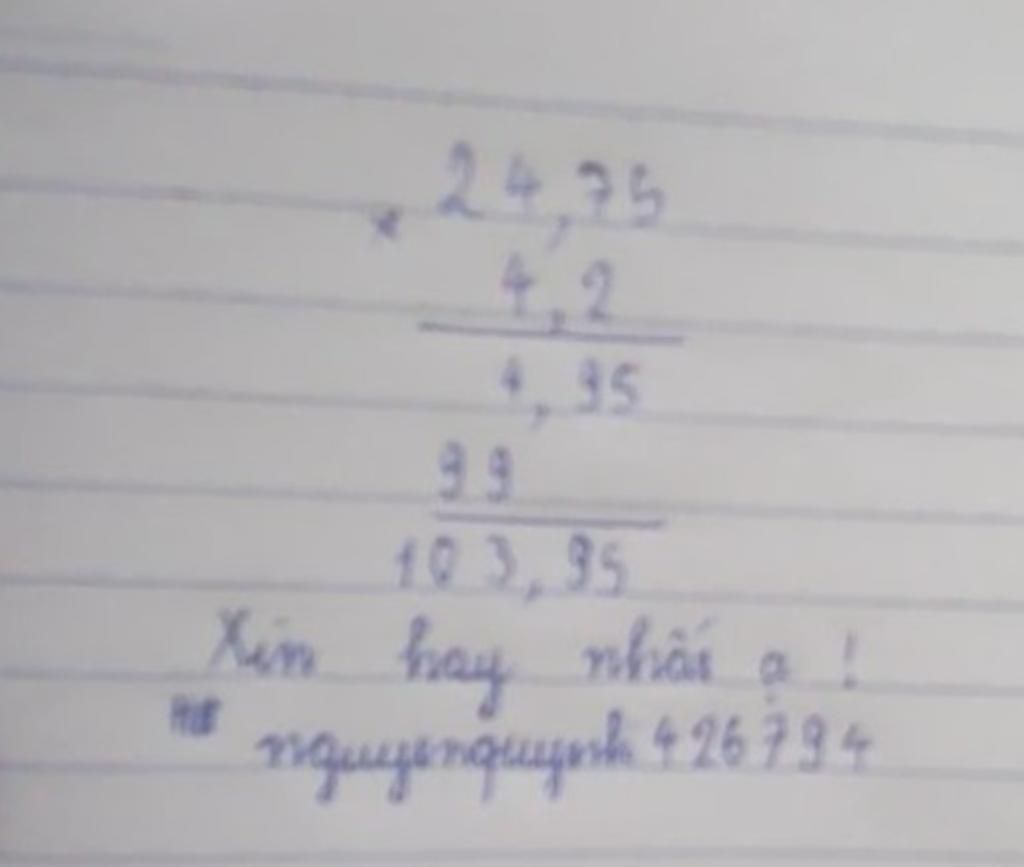 24,75
×
4,2
4,95
99
103,95
Xin hay nhất ạ !
nguyenquynh426794